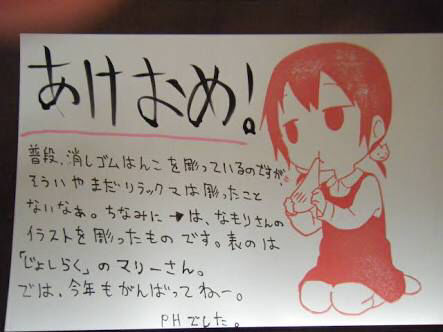 あけおめ！
普段、消しゴムはんこを彫っているのですが
そういやまだリラックマは彫ったこと
ないなぁ。ちなみに→は、なもりさんの
イラストを彫ったものです。表のは
「じょしらく」のマリーさん。
では、今年もがんばってねー。
PHでした。